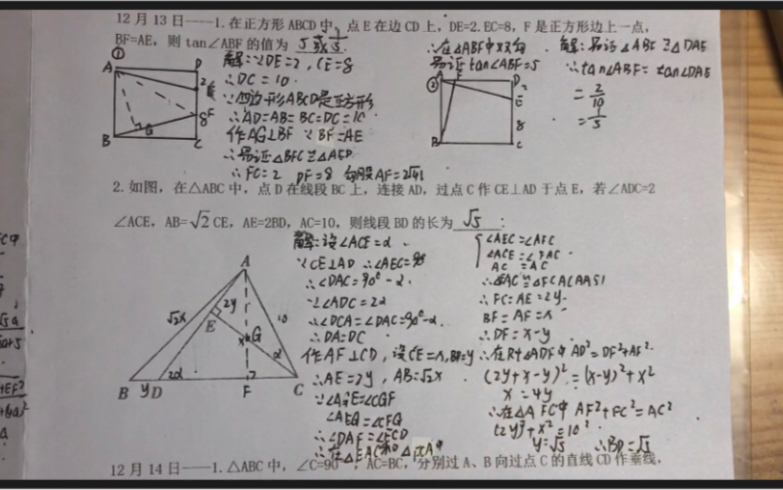 12月13日——1.在正方形ABCD中,点E在边CD上,DE=2.EC=8,F是正方形边上一点,
BF=AE,则tan∠ABF的值为 5或1/5
①
A D
2
E
F
8
B G C
解:∵DE=2,CE=8
∴DC=10
∵四边形ABCD是正方形
∴AD=AB=BC=DC=10
作AG⊥BF ∵BF=AE
∴易证△BFC≌△AED
∴FC=2 DF=8 勾股AF=2√41
∴在△ABF中双勾
易得tan∠ABF=5
②
A F D
2
E
8
B C
解:易证△ABF≌△DAE
∴tan∠ABF=tan∠DAE
=2/10
=1/5
2.如图,在△ABC中,点D在线段BC上,连接AD,过点C作CE⊥AD于点E,若∠ADC=2
∠ACE,AB=√2CE,AE=2BD,AC=10,则线段BD的长为 √5 :
A
√2x 2y 10
E G
x
α
B y D 2α F C
解:设∠ACE=α.
∵CE⊥AD ∴∠AEC=90°
∴∠DAC=90°-α.
∵∠ADC=2α
∴∠DCA=∠DAC=90°-α.
∴DA=DC
作AF⊥CD,设CE=x,BD=y
∴AE=2y,AB=√2x
∵∠AGE=∠CGF
∠AEG=∠CFG
∴∠DAF=∠ECD
∴在△EAC和△FCA中
∠AEC=∠AFC
∠ACE=∠FAC
AC=AC
∴△EAC≌△FCA(AAS)
∴FC=AE=2y.
BF=AF=x
∴DF=x-y
∴在Rt△ADF中AD²=DF²+AF².
(2y+x-y)²=(x-y)²+x²
x=4y
∴在△AFC中 AF²+FC²=AC²
(2y)²+x²=10²
y=√5 ∴BD=√5
12月14日——1.△ABC中,∠C=90°,AC=BC,分别过A、B向过点C的直线CD作垂线,